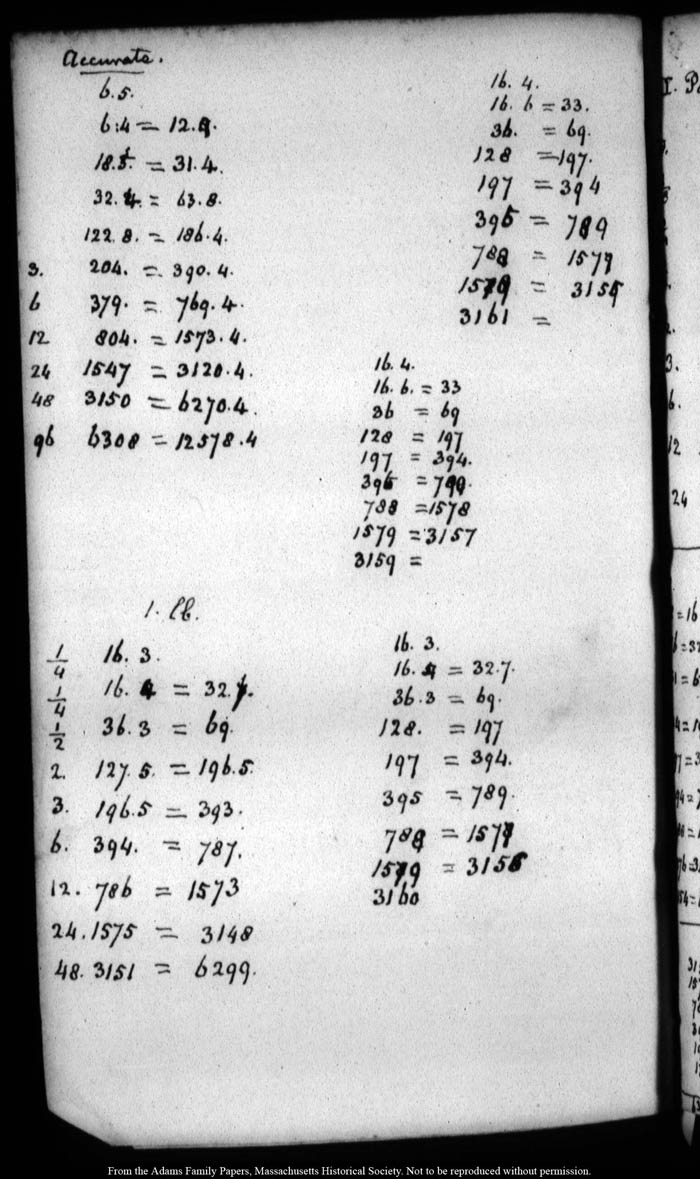 Accurate.
6.5.
6:4 = 12.9.
18.5. = 31.4.
32.4. = 63.8.
122.8. = 186.4.
3. 204. = 390.4.
6 379. = 769.4.
12 804. = 1573.4.
24 1547 = 3120.4.
48 3150 = 6270.4.
96 6308 = 12578.4
16. 4.
16. 6 = 33.
36. = 69.
128 = 197.
197 = 394
395 = 789
788 = 1577
1579 = 3155
3161 =
16. 4.
16. 6. = 33
36 = 69
128 = 197
197 = 394.
395 = 789.
788 = 1578
1579 = 3157
3159 =
1. lb.
1/4 16. 3.
1/4 16. 4 = 32.7.
1/2 36. 3 = 69.
2. 127. 5. = 196.5.
3. 196.5 = 393.
6. 394. = 787.
12. 786 = 1573
24. 1575 = 3148
48. 3151 = 6299.
16. 3.
16. 4 = 32.7.
36.3 = 69.
128. = 197
197 = 394.
395 = 789.
788 = 1577
1579 = 3156
3160
I. P
3.
6.
12
24
From the Adams Family Papers, Massachusetts Historical Society. Not to be reproduced without permission.